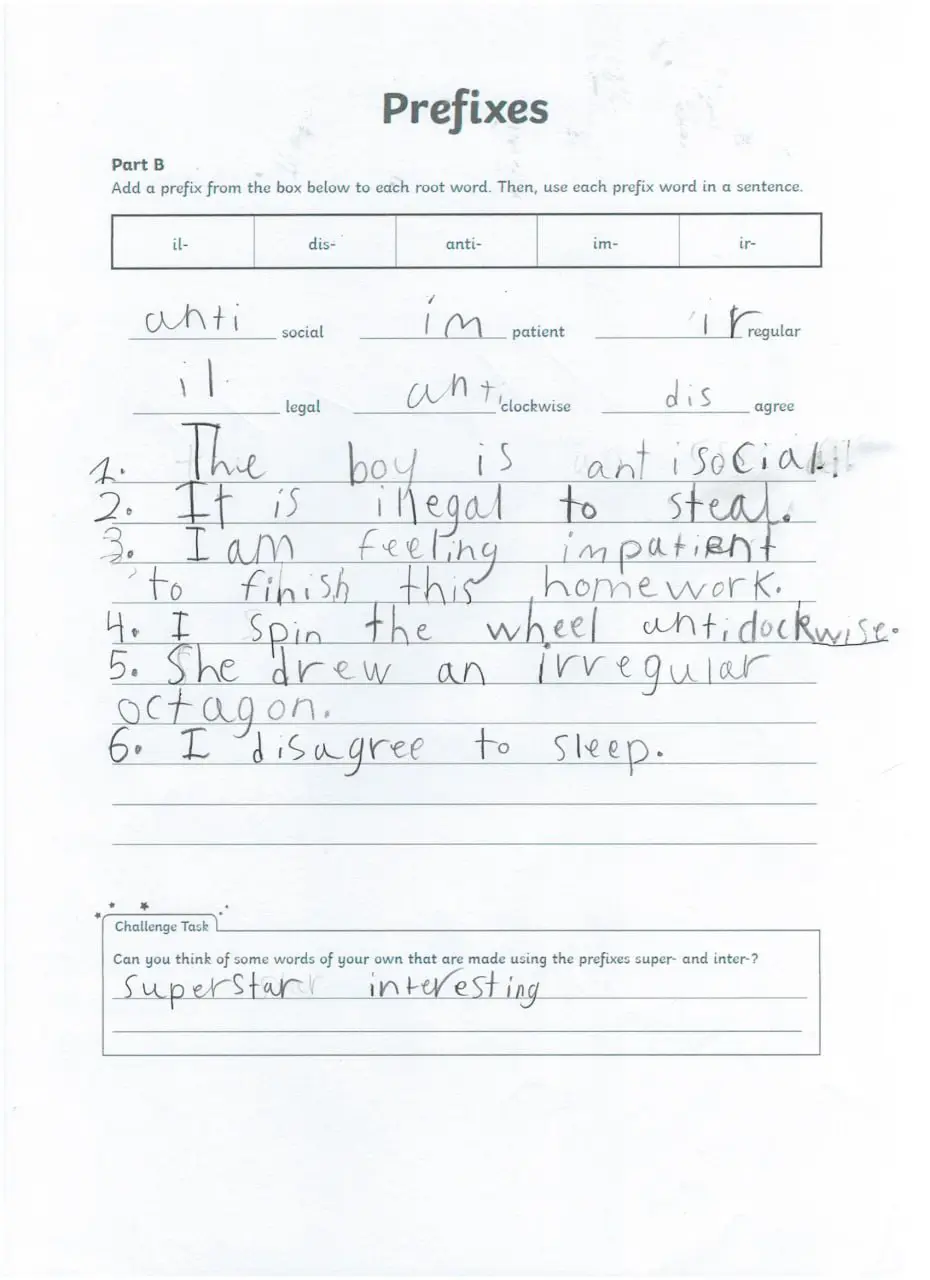 Prefixes
Part B
Add a prefix from the box below to each root word. Then, use each prefix word in a sentence.
il- dis- anti- im- ir-
anti social im patient ir regular
il legal anti clockwise dis agree
1. The boy is antisocial!
2. It is illegal to steal.
3. I am feeling impatient
to finish this homework.
4. I spin the wheel anticlockwise.
5. She drew an irregular
octagon.
6. I disagree to sleep.
Challenge Task
Can you think of some words of your own that are made using the prefixes super- and inter-?
superstar interesting